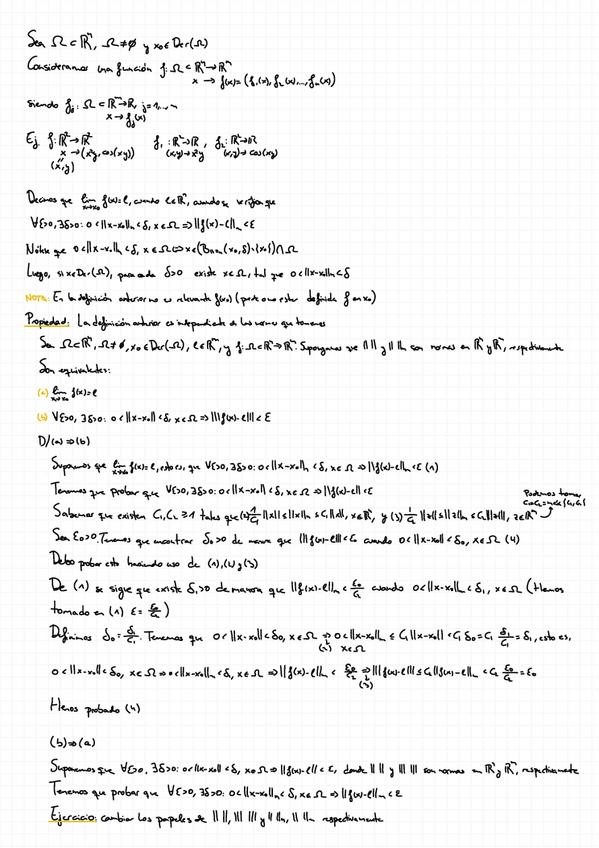 Sea Ω ⊂ ℝⁿ, Ω ≠ ∅ y x₀ ∈ Der(Ω)
Consideramos una función f: Ω ⊂ ℝⁿ → ℝᵐ
x → f(x) = (f₁(x), f₂(x), ..., fₘ(x))
siendo fⱼ: Ω ⊂ ℝⁿ → ℝ, j = 1, ..., m
x → fⱼ(x)
Ej. f: ℝ² → ℝ² f₁: ℝ² → ℝ, f₂: ℝ² → ℝ
x → (x²y, cos(xy)) (x,y) → x²y (x,y) → cos(xy)
(x,y)
Decimos que lim f(x) = l, cuando l ∈ ℝᵐ, cuando se verifica que
x→x₀
∀ε>0, ∃δ>0: 0 < ||x-x₀||ₙ < δ, x ∈ Ω ⇒ ||f(x)-l||ₘ < ε
Nótese que 0 < ||x-x₀||ₙ < δ, x ∈ Ω ⇔ x ∈ (B(x₀,δ)\{x₀}) ∩ Ω
Luego, si x ∈ Der(Ω), para cada δ>0 existe x ∈ Ω, tal que 0 < ||x-x₀||ₙ < δ
NOTA: En la definición anterior no es relevante f(x₀) (puede o no estar definida f en x₀)
Propiedad: La definición anterior es independiente de las normas que tomemos
Sea Ω ⊂ ℝⁿ, Ω ≠ ∅, x₀ ∈ Der(Ω), l ∈ ℝᵐ, y f: Ω ⊂ ℝⁿ → ℝᵐ. Supongamos que || || y ||| ||| son normas en ℝⁿ y ℝᵐ, respectivamente
Son equivalentes:
(a) lim f(x) = l
x→x₀
(b) ∀ε>0, ∃δ>0: 0 < ||x-x₀|| < δ, x ∈ Ω ⇒ |||f(x)-l||| < ε
D/(a) ⇒ (b)
Suponemos que lim f(x) = l, esto es, que ∀ε>0, ∃δ>0: 0 < ||x-x₀||ₙ < δ, x ∈ Ω ⇒ ||f(x)-l||ₘ < ε (1)
x→x₀
Tenemos que probar que ∀ε>0, ∃δ>0: 0 < ||x-x₀|| < δ, x ∈ Ω ⇒ |||f(x)-l||| < ε
Podemos tomar
C₁=C₂=máx{C₁,C₂}
Sabemos que existen C₁, C₂ ≥ 1 tales que (2) 1/C₁ ||x|| ≤ ||x||ₙ ≤ C₁||x||, x ∈ ℝⁿ, y (3) 1/C₂ |||z||| ≤ ||z||ₘ ≤ C₂|||z|||, z ∈ ℝᵐ
Sea ε₀>0. Tenemos que encontrar δ₀>0 de manera que |||f(x)-l||| < ε₀ cuando 0 < ||x-x₀|| < δ₀, x ∈ Ω (4)
Debo probar esto haciendo uso de (1), (2) y (3)
De (1) se sigue que existe δ₁>0 de manera que ||f(x)-l||ₘ < ε₀/C₂ cuando 0 < ||x-x₀||ₙ < δ₁, x ∈ Ω (Hemos
tomado en (1) ε = ε₀/C₂)
Definimos δ₀ = δ₁/C₁. Tenemos que 0 < ||x-x₀|| < δ₀, x ∈ Ω ⇒ 0 < ||x-x₀||ₙ ≤ C₁||x-x₀|| < C₁δ₀ = C₁ δ₁/C₁ = δ₁, esto es,
(2) x ∈ Ω
0 < ||x-x₀|| < δ₀, x ∈ Ω ⇒ 0 < ||x-x₀||ₙ < δ₁, x ∈ Ω ⇒ ||f(x)-l||ₘ < ε₀/C₂ ⇒ |||f(x)-l||| ≤ C₂||f(x)-l||ₘ < C₂ ε₀/C₂ = ε₀
(3)
Hemos probado (4)
(b) ⇒ (a)
Suponemos que ∀ε>0, ∃δ>0: 0 < ||x-x₀|| < δ, x ∈ Ω ⇒ |||f(x)-l||| < ε, donde || || y ||| ||| son normas en ℝⁿ y ℝᵐ, respectivamente
Tenemos que probar que ∀ε>0, ∃δ>0: 0 < ||x-x₀||ₙ < δ, x ∈ Ω ⇒ ||f(x)-l||ₘ < ε
Ejercicio: cambiar los papeles de || ||, ||| ||| y || ||ₙ, || ||ₘ respectivamente